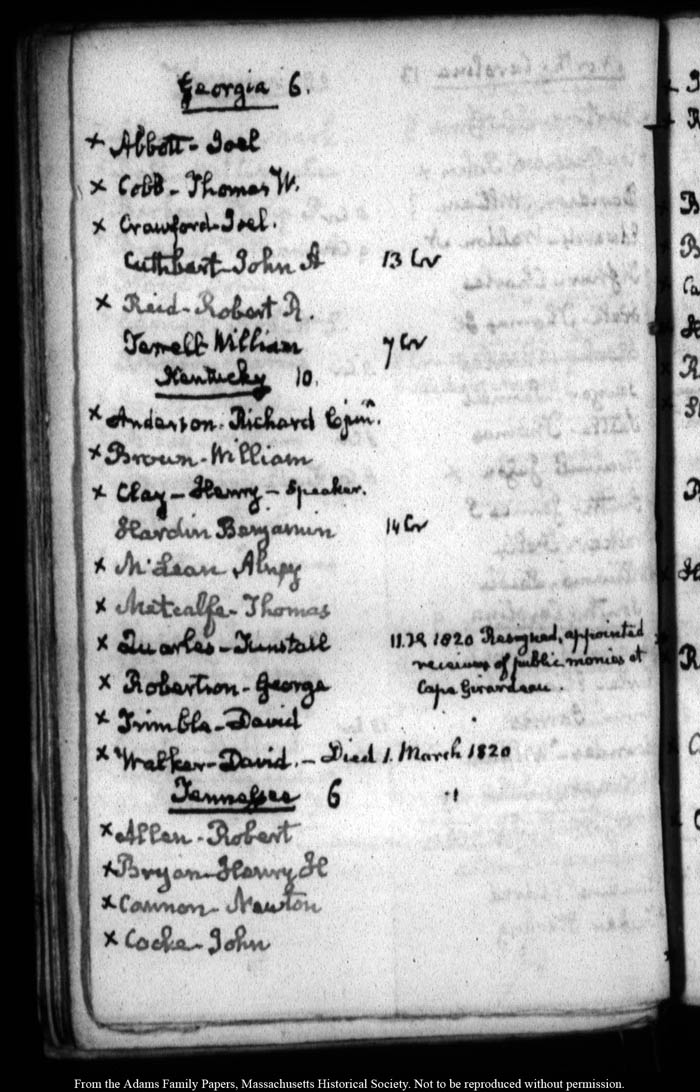 Georgia 6.
× Abbott - Joel
× Cobb - Thomas W.
× Crawford - Joel.
Cuthbert - John A 13 Cr
× Reid - Robert R.
Terrell - William 7 Cr
Kentucky 10.
× Anderson. Richard C jun.^r
× Brown - William
× Clay - Henry - Speaker.
Hardin Benjamin 14 Cr
× M^cLean Alney
× Metcalfe - Thomas
× Quarles - Tunstall 1820 Resigned, appointed
receiver of public monies at
Cape Girardeau.
× Robertson - George
× Trimble - David
× Walker - David. - Died 1. March 1820
Tennessee 6
× Allen - Robert
× Bryan - Henry H
× Cannon - Newton
× Cocke - John
From the Adams Family Papers, Massachusetts Historical Society. Not to be reproduced without permission.